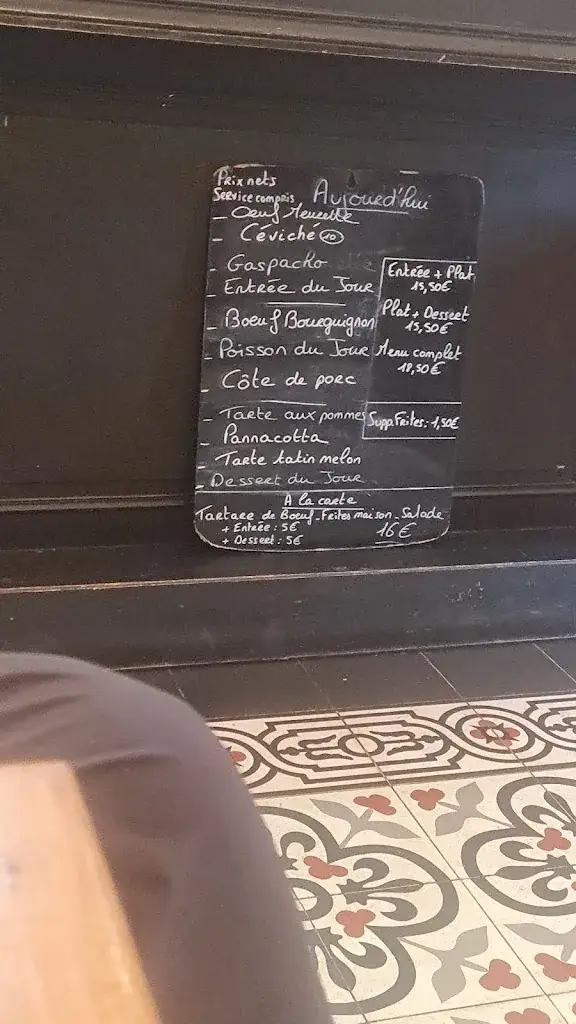 Prix nets
Service compris
Aujourd'hui
- Oeuf Meurette
- Céviché 10
- Gaspacho
- Entrée du Jour
- Boeuf Bourguignon
- Poisson du Jour
- Côte de porc
- Tarte aux pommes
- Pannacotta
- Tarte tatin melon
- Dessert du Jour
Entrée + Plat
15,50€
Plat + Dessert
15,50€
Menu complet
18,50€
Supp Frites : 1,50€
A la carte
Tartare de Boeuf - Frites maison - Salade
+ Entrée : 5€
+ Dessert : 5€
16€